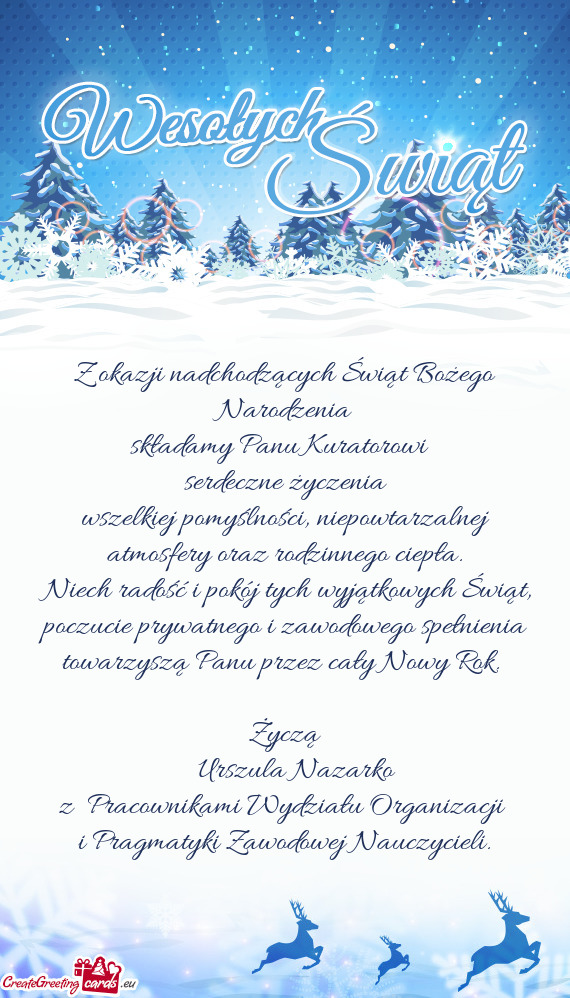 Wesołych
Świąt
Z okazji nadchodzących Świąt Bożego
Narodzenia
składamy Panu Kuratorowi
serdeczne życzenia
wszelkiej pomyślności, niepowtarzalnej
atmosfery oraz rodzinnego ciepła.
Niech radość i pokój tych wyjątkowych Świąt,
poczucie prywatnego i zawodowego spełnienia
towarzyszą Panu przez cały Nowy Rok.
Życzą
Urszula Nazarko
z Pracownikami Wydziału Organizacji
i Pragmatyki Zawodowej Nauczycieli.
CreateGreeting cards .eu